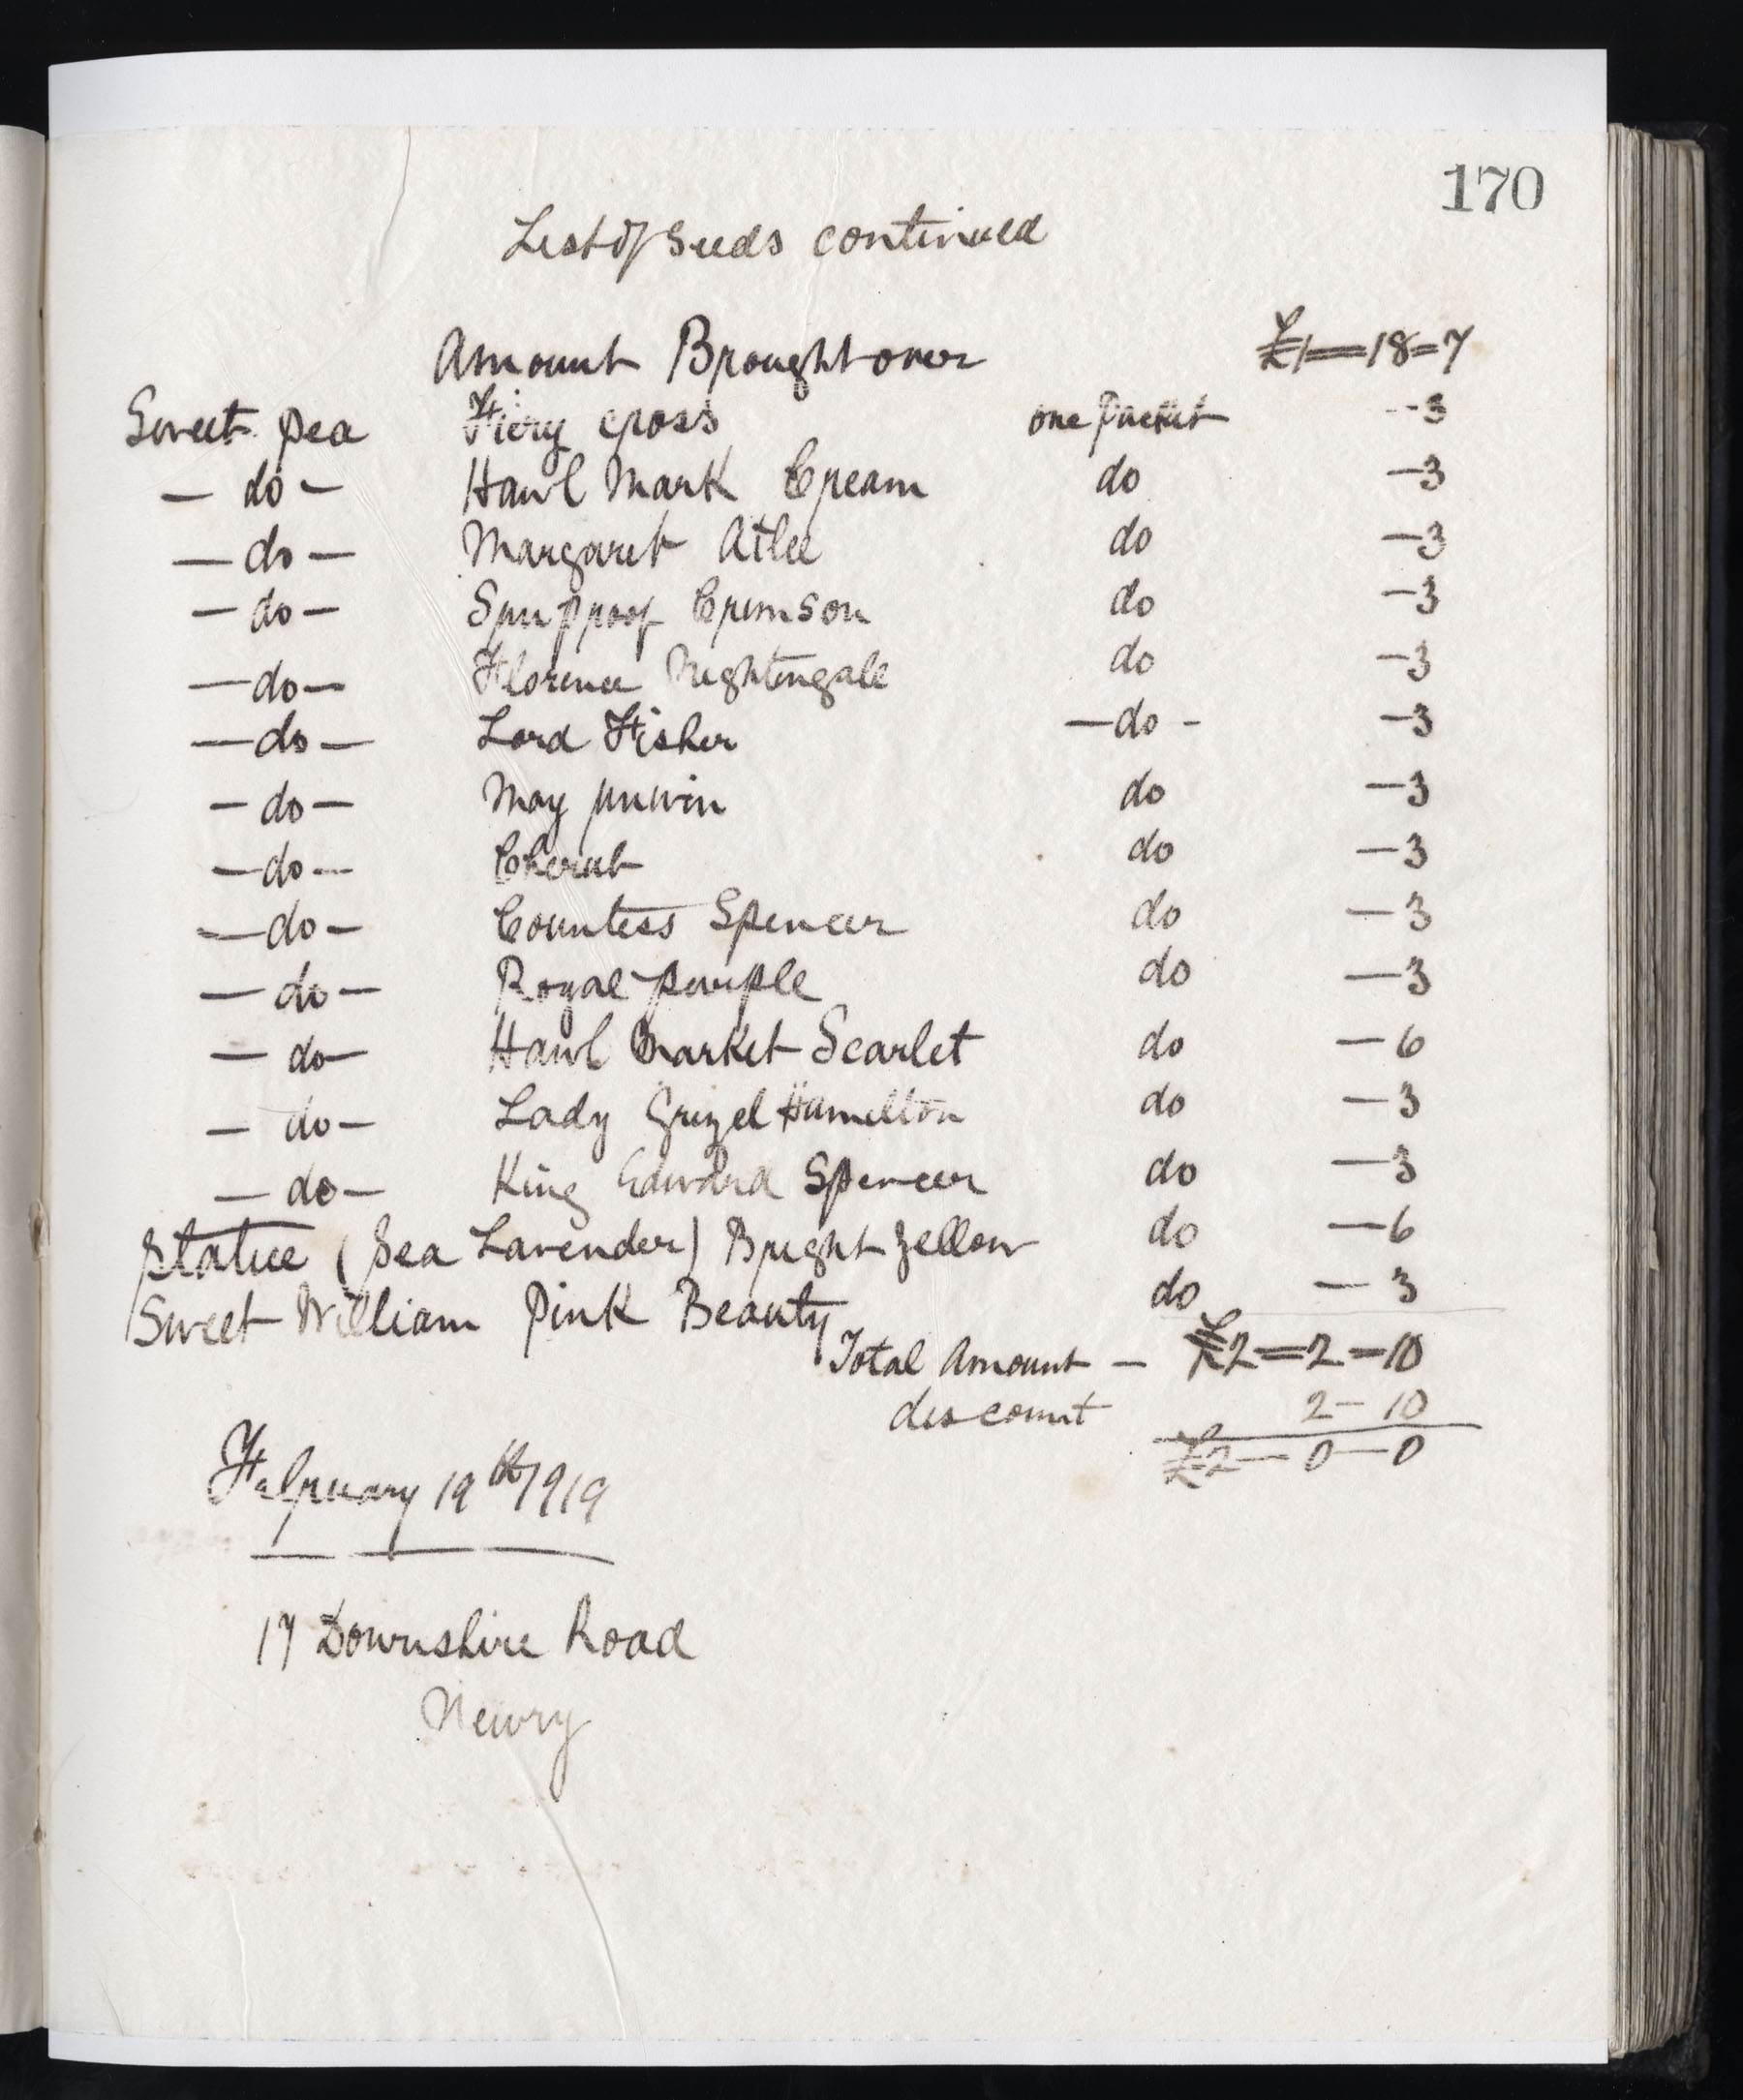 170
List of Seeds continued
Amount Brought over £1=18=7
Sweet pea Fiery cross one packet --3
- do - Hawl Mark Cream do -3
- do - Margaret Atlee do -3
- do - Sunproof Crimson do -3
- do - Florence Nightengale do -3
- do - Lord Fisher - do - -3
- do - May unwin do -3
- do - Cherub do -3
- do - Countess Spencer do -3
- do - Royal purple do -3
- do - Hawl market Scarlet do -6
- do - Lady Grizel Hamilton do -3
- do - King Edward Spencer do -3
Statice (Sea Lavender) Bright yellow do -6
Sweet William Pink Beauty do -3
Total Amount - £2=2=10
discount 2-10
£2-0-0
February 19th 1919
17 Downshire Road
Newry